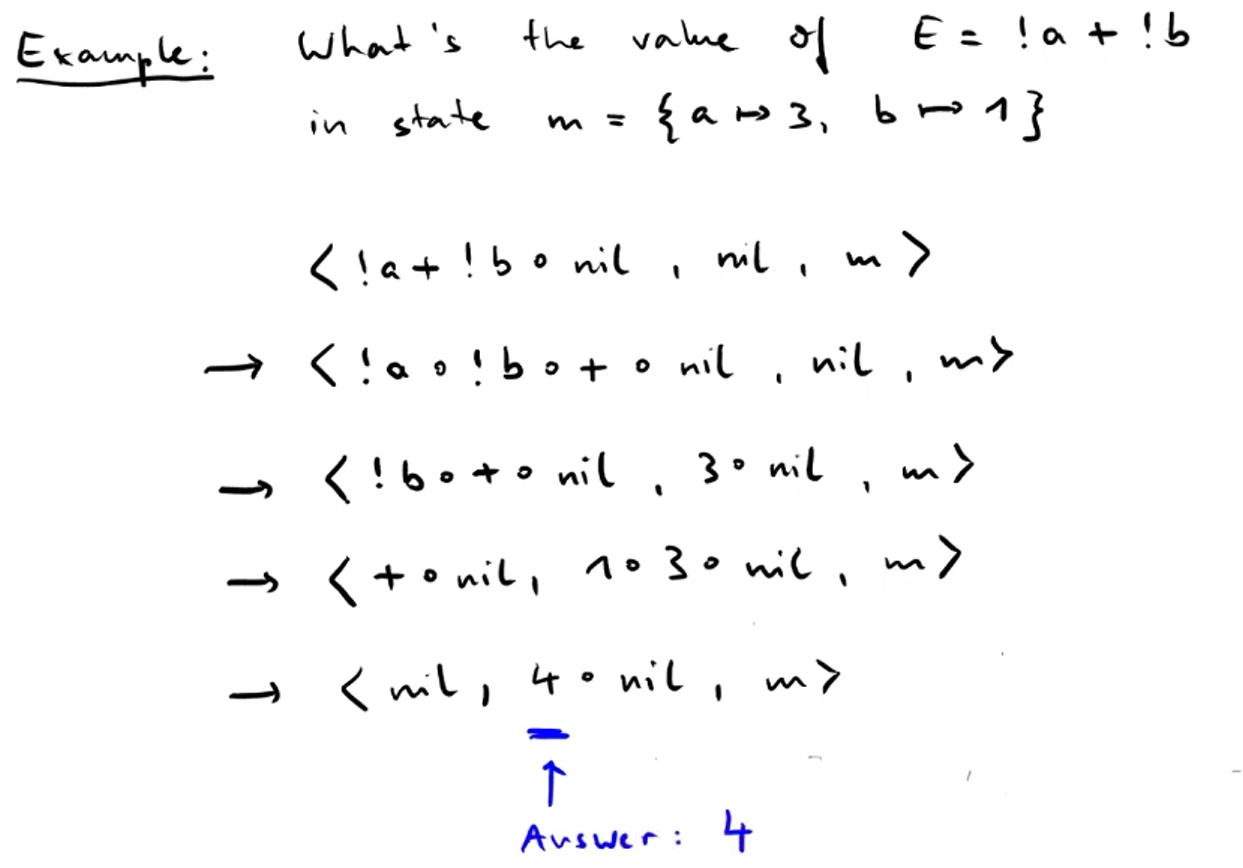 Example: What's the value of E = !a + !b
in state m = {a ↦ 3, b ↦ 1}
< !a + !b ∘ nil , nil , m >
→ < !a ∘ !b ∘ + ∘ nil , nil , m >
→ < !b ∘ + ∘ nil , 3 ∘ nil , m >
→ < + ∘ nil , 1 ∘ 3 ∘ nil , m >
→ < nil , 4 ∘ nil , m >
↑
Answer: 4